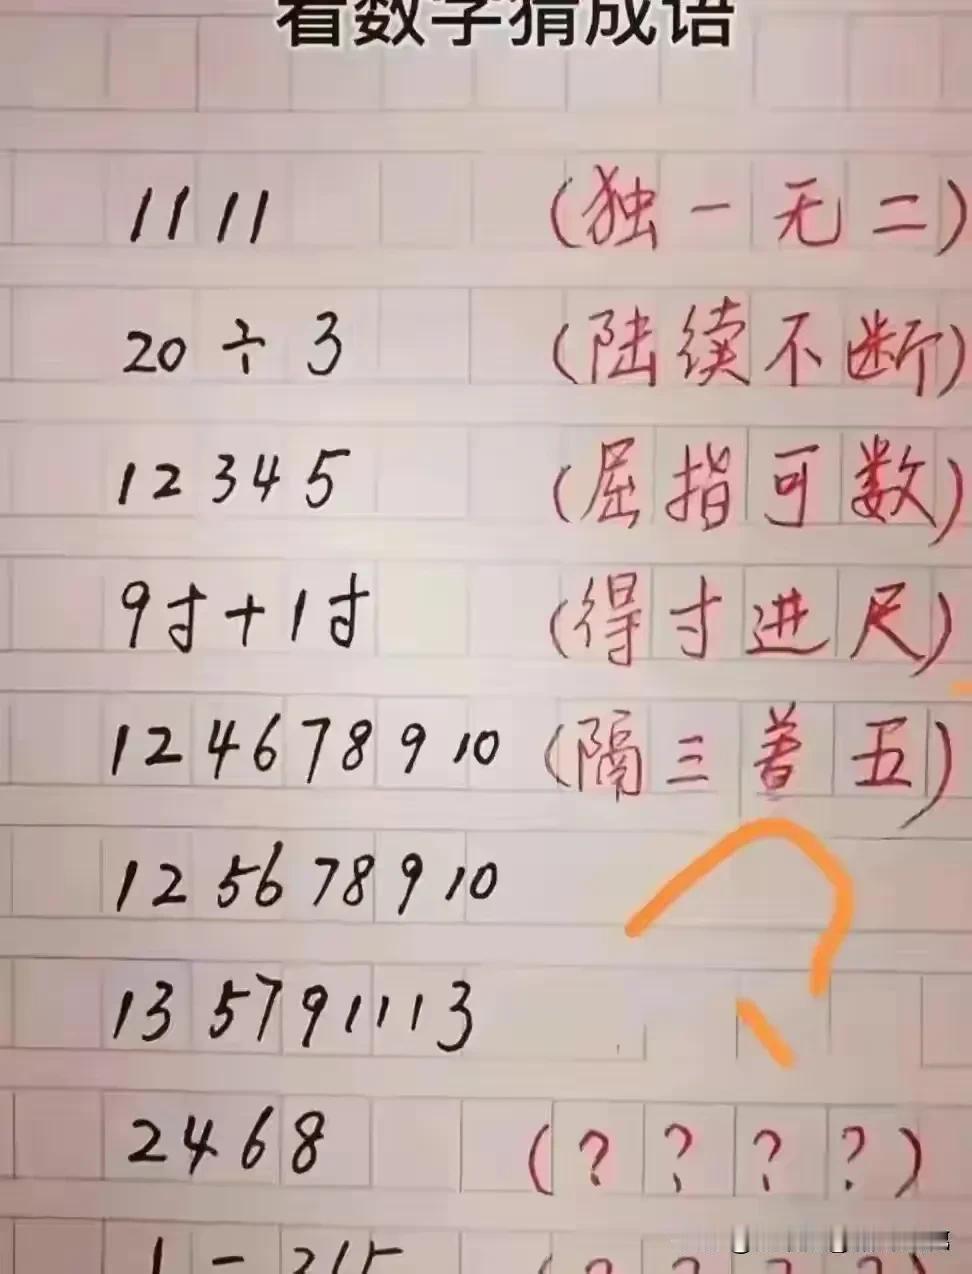 看数字猜成语
1111 (独一无二)
20÷3 (陆续不断)
12345 (屈指可数)
9寸+1寸 (得寸进尺)
124678910 (隔三差五)
125678910
135791113
2468 (????)